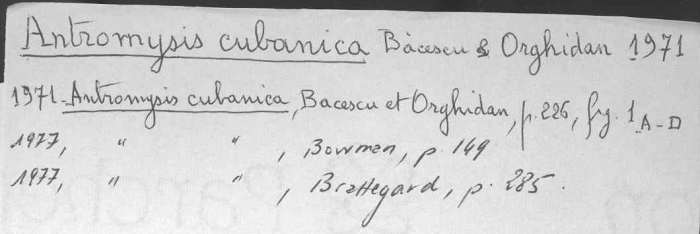 Antromysis cubanica Băcescu & Orghidan 1971
1971-Antromysis cubanica, Bacescu et Orghidan, p. 226, fig. 1A-D
1977, " ", Bowman, p. 149
1977, " ", Brattegard, p. 285.